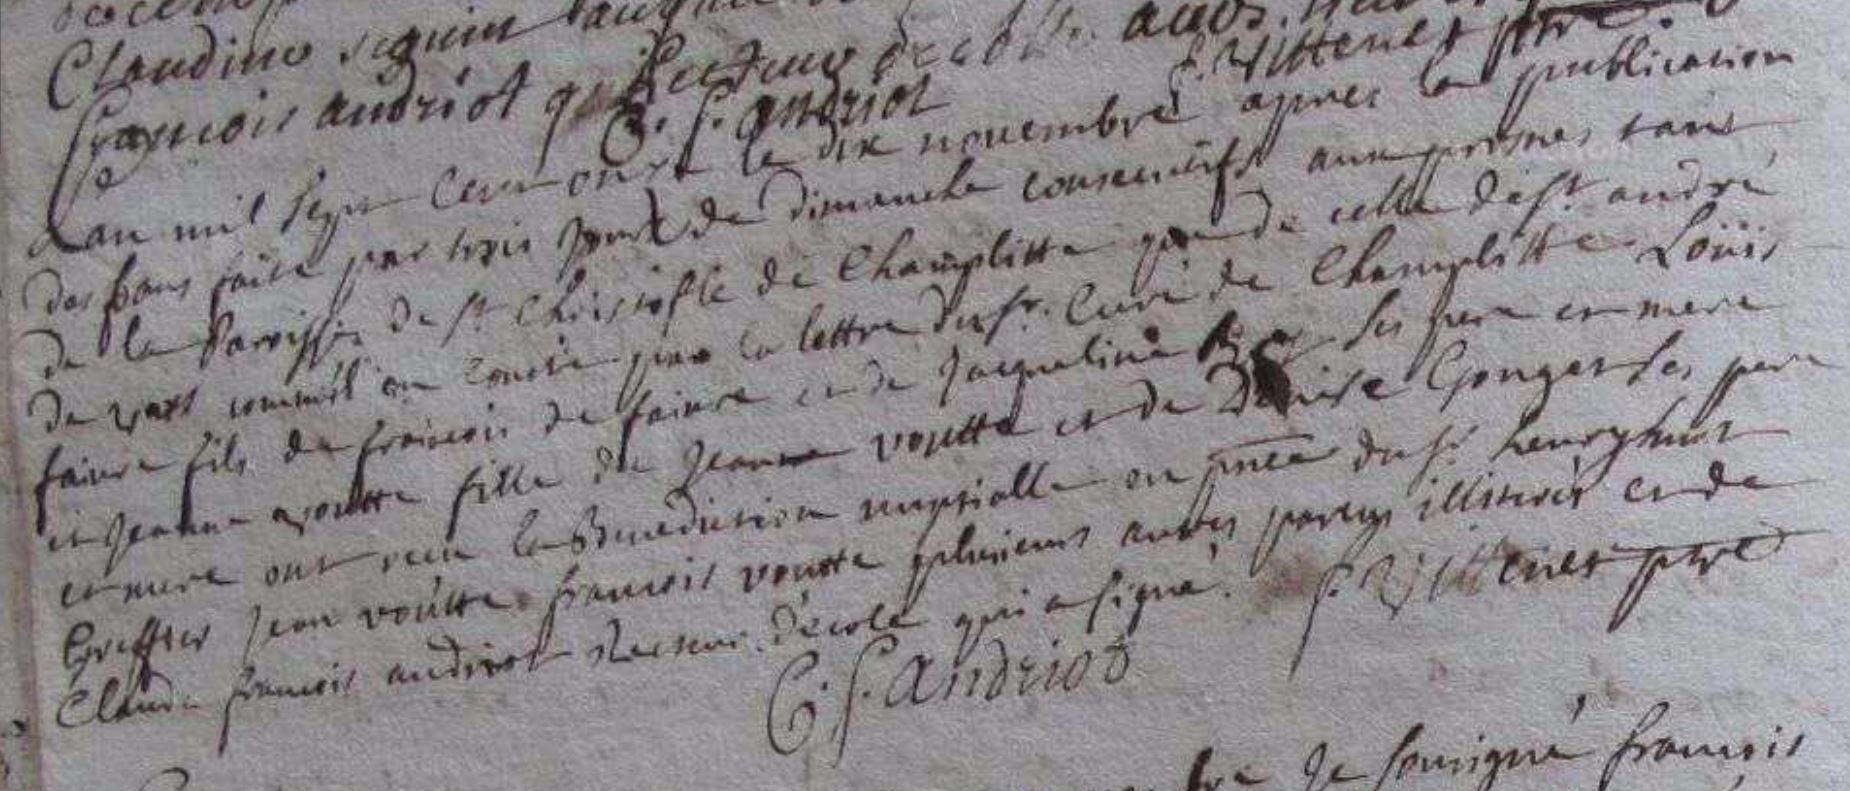 Claudine seguin
francois andriot
f. Vittenet ptre.
C. f. andriot
Lan mil sept cent onze le dix novembre apres la publication
des bans faite par trois jours de dimanche consecutifs aux prosnes tant
de la Parroisse de st Christofle de Champlitte que de celle de st andré
de comme il conste par la lettre du sr. Curé de Champlitte Louis
faivre fils de francois de faivre et de Jacqueline ses pere et mere
et Jeanne voutte fille de Jean voutte et de Denise Gouget ses pere
et mere ont receu la Benediction nuptialle en pnce du sr henry
Greffier Jean voutte francois voutte plusieurs autres parens illiterés et de
Claude francois andriot Recteur d'école qui a signé.
f. Vittenet ptre
C. f. Andriot
bre Je sousigné francois